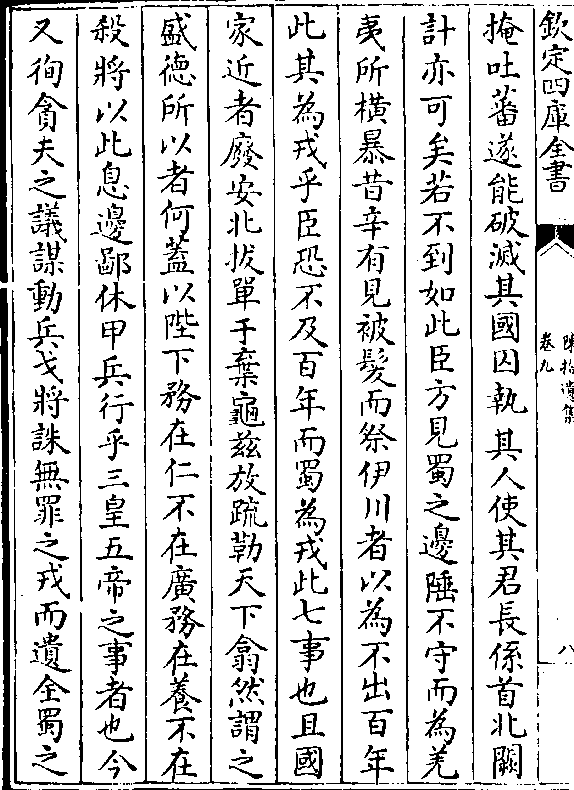 欽定四庫全書
陳拾遺集
卷九
八
掩吐蕃遂能破滅其國囚執其人使其君長係首北闕
計亦可矣若不到如此臣方見蜀之邊陲不守而為羌
夷所橫暴昔辛有見被髮而祭伊川者以為不出百年
此其為戎乎臣恐不及百年而蜀為戎此七事也且國
家近者廢安北拔單于棄龜茲放疏勒天下翕然謂之
盛德所以者何蓋以陛下務在仁不在廣務在養不在
殺將以此息邊鄙休甲兵行乎三皇五帝之事者也今
又徇貪夫之議謀動兵戈將誅無罪之戎而遺全蜀之